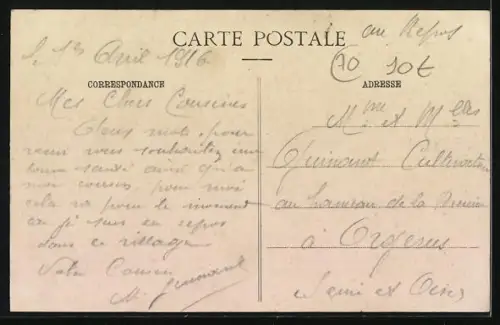 au Repos
Le 1er Avril 1916
CARTE POSTALE
70 10t
CORRESPONDANCE
ADRESSE
Mes Chers Cousines
Deux mots pour
venir vous souhaitez une
bonne santé ainsi qu'a
mon cousin pour moi
cela va pour le moment
car je suis en repos
dans ce village
Votre Cousin
M. Guinant
Mme et Mlles
Guinant Cultivateur
au hameau de la
à Orgerus
Seine et Oise